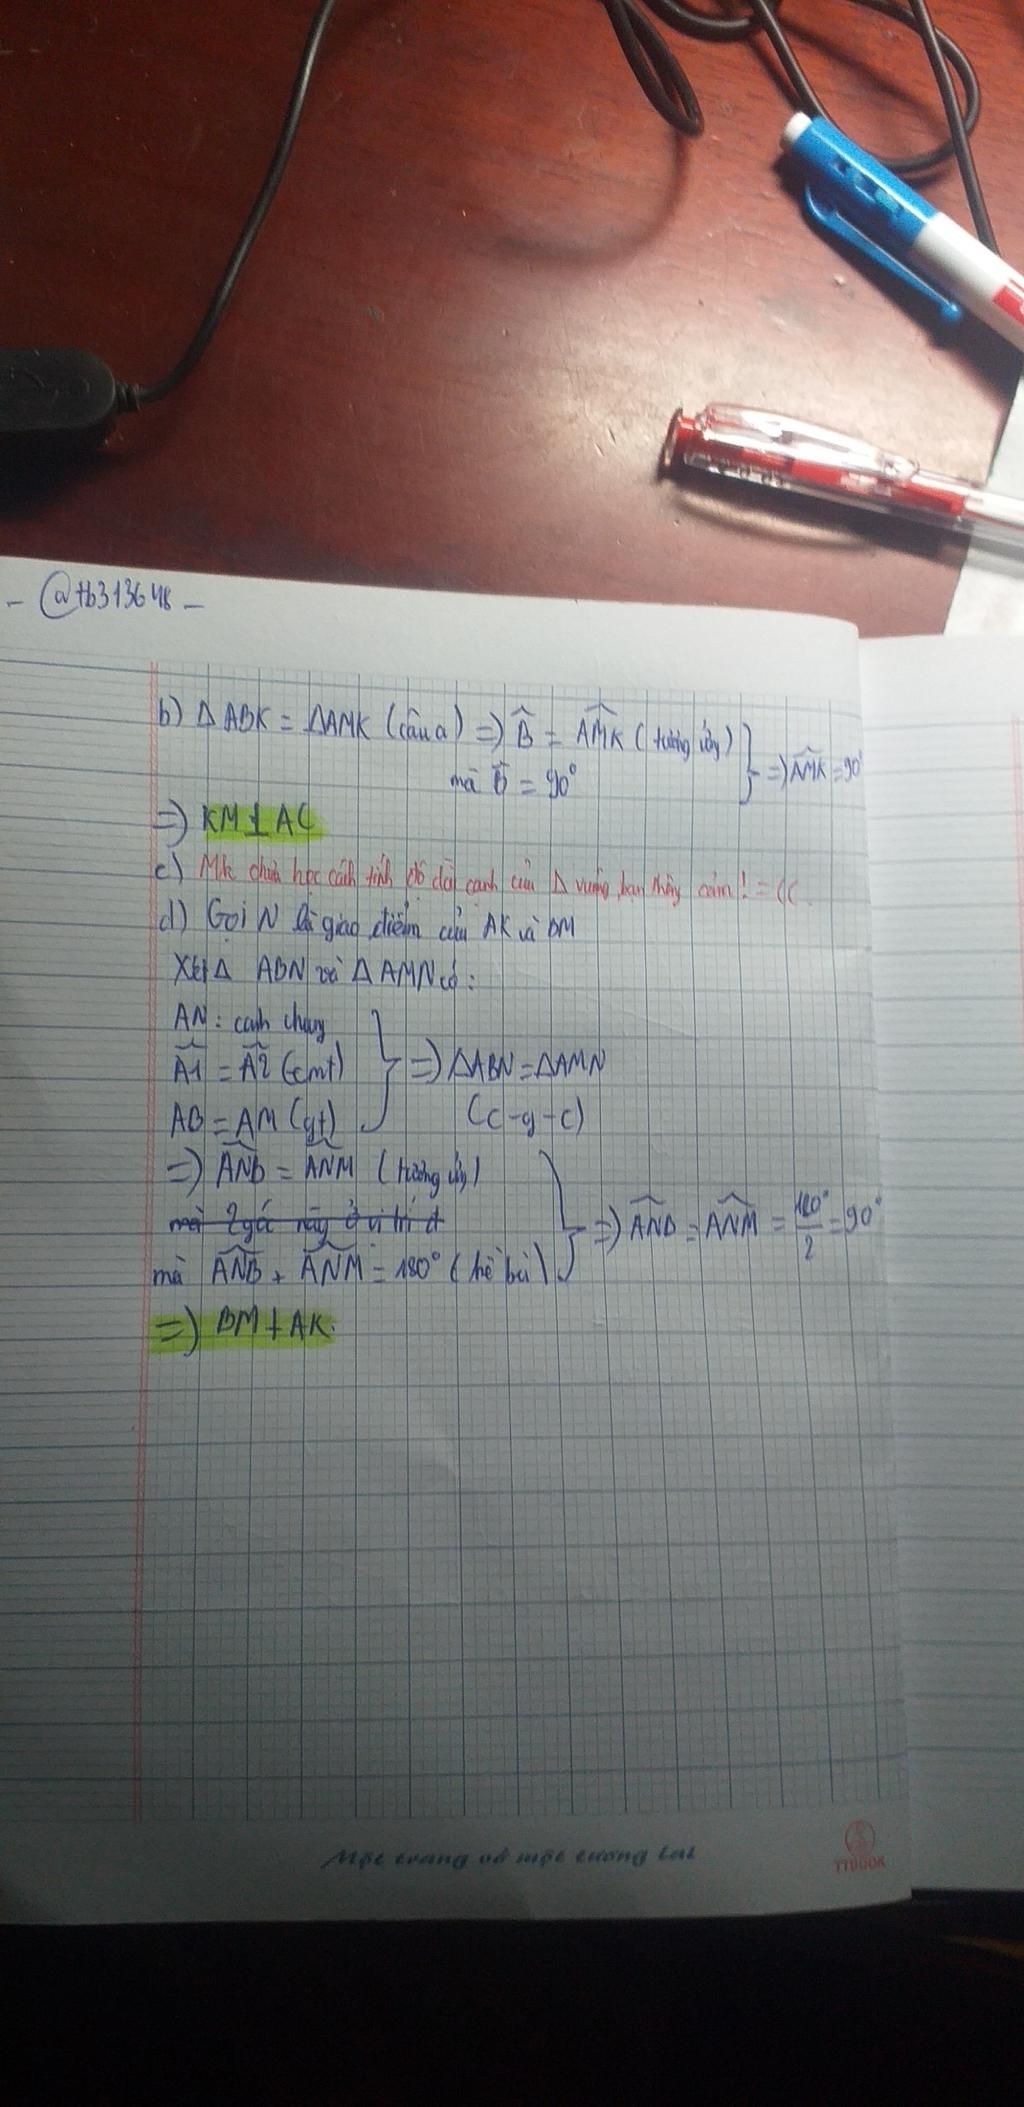 - @tb313648 -
b) Δ ABK = ΔAMK (câu a) => B̂ = AMK (tương ứng)
mà B̂ = 90° => AMK = 90°
=> KM ⊥ AC
c) Mk chưa học cách tính độ dài cạnh của Δ vuông, bạn thông cảm! =((
d) Gọi N là giao điểm của AK và BM
Xét Δ ABN và Δ AMN có:
AN: cạnh chung
A1 = A2 (cmt) => ΔABN = ΔAMN
AB = AM (gt) (c-g-c)
=> ANB = ANM (tương ứng)
mà 2 góc này ở vị trí đ => ANB = ANM = 180°/2 = 90°
mà ANB + ANM = 180° (kề bù)
=> BM ⊥ AK.
Một trang vở một tương lai
TTBOOK